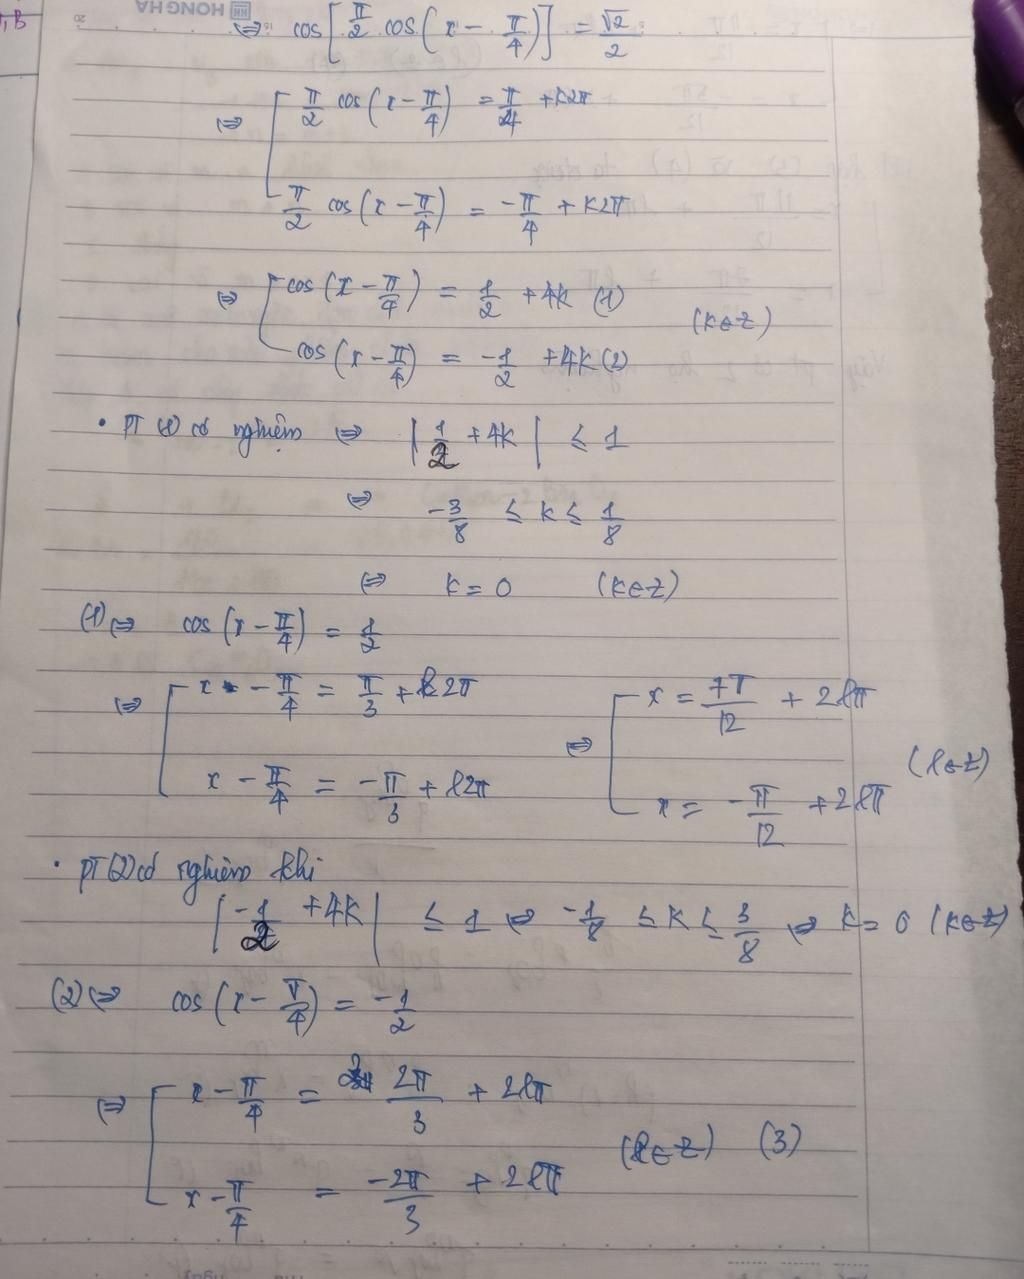 HONG HA
⇔ cos[π/2 cos(x - π/4)] = √2/2
⇔ [ π/2 cos(x - π/4) = π/4 + k2π
π/2 cos(x - π/4) = -π/4 + k2π
⇔ [ cos(x - π/4) = 1/2 + 4k (1)
(k∈Z)
cos(x - π/4) = -1/2 + 4k (2)
• PT (1) có nghiệm ⇔ |1/2 + 4k| ≤ 1
⇔ -3/8 ≤ k ≤ 1/8
⇔ k = 0 (k∈Z)
(1) ⇔ cos(x - π/4) = 1/2
⇔ [ x - π/4 = π/3 + l2π ⇔ [ x = 7π/12 + 2lπ
x - π/4 = -π/3 + l2π x = -π/12 + 2lπ (l∈Z)
• PT (2) có nghiệm khi
|-1/2 + 4k| ≤ 1 ⇔ -1/8 ≤ k ≤ 3/8 ⇔ k = 0 (k∈Z)
(2) ⇔ cos(x - π/4) = -1/2
⇔ [ x - π/4 = 2π/3 + 2lπ
(l∈Z) (3)
x - π/4 = -2π/3 + 2lπ